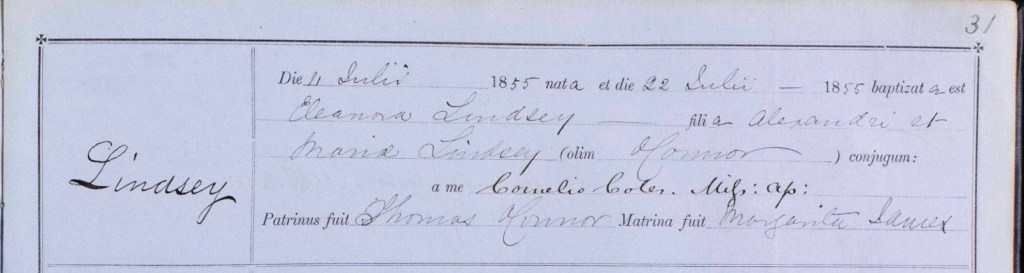 31
Die 11 Julii 1855 nata et die 22 Julii — 1855 baptizata est
Eleanora Lindsey — filia Alexandri et
Maria Lindsey (olim O'Connor) conjugum:
Lindsey
a me Cornelio Coles. Miss: ap:
Patrinus fuit Thomas O'Connor Matrina fuit Margarita James